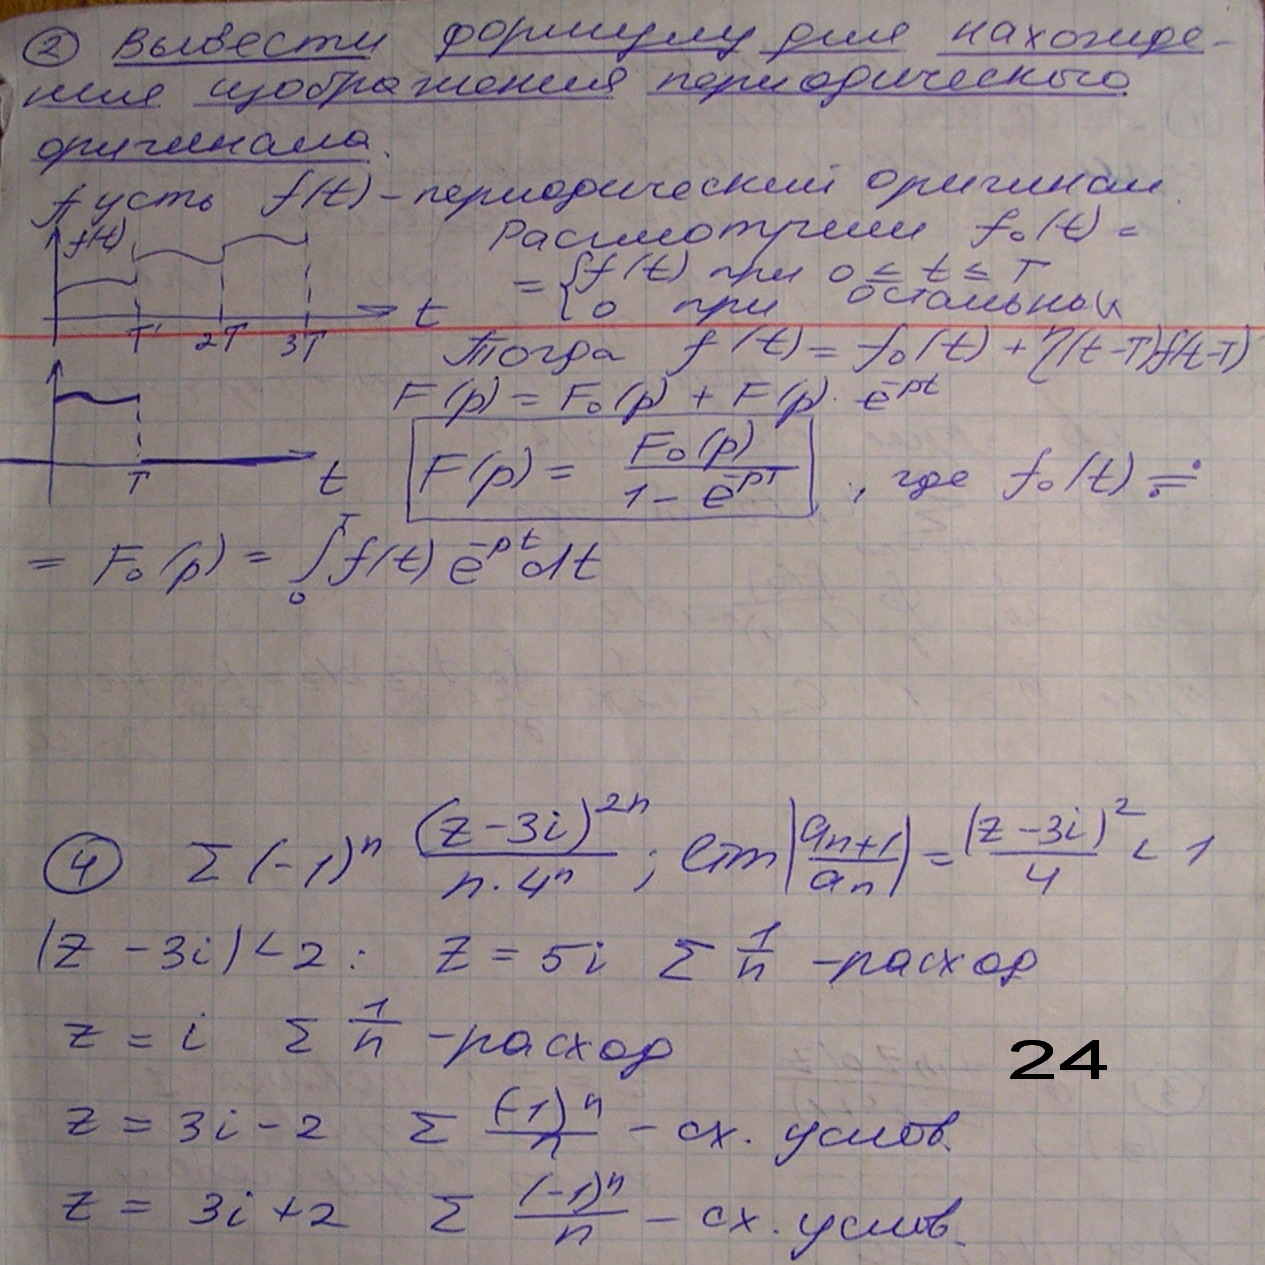 ② Вывести формулу для нахожде-
ния изображения периодического
оригинала.
Пусть f(t) – периодический оригинал.
f(t)
Рассмотрим f₀(t) =
= { f(t) при 0 ≤ t ≤ T
0 при остальных
t
T 2T 3T
Тогда f(t) = f₀(t) + η(t-T)f(t-T)
F(p) = F₀(p) + F(p) · e^{-pt}
F(p) = F₀(p) / (1 - e^{-pT}) , где f₀(t) ≓
T t
= F₀(p) = ∫₀^T f(t) e^{-pt} dt
④ Σ (-1)^n (z-3i)^{2n} / (n·4^n) ; lim |a_{n+1} / a_n| = |z-3i|² / 4 < 1
|z-3i| < 2 : z = 5i Σ 1/n – расход
z = i Σ 1/n – расход
24
z = 3i - 2 Σ (-1)^n / n – сх. услов.
z = 3i + 2 Σ (-1)^n / n – сх. услов.